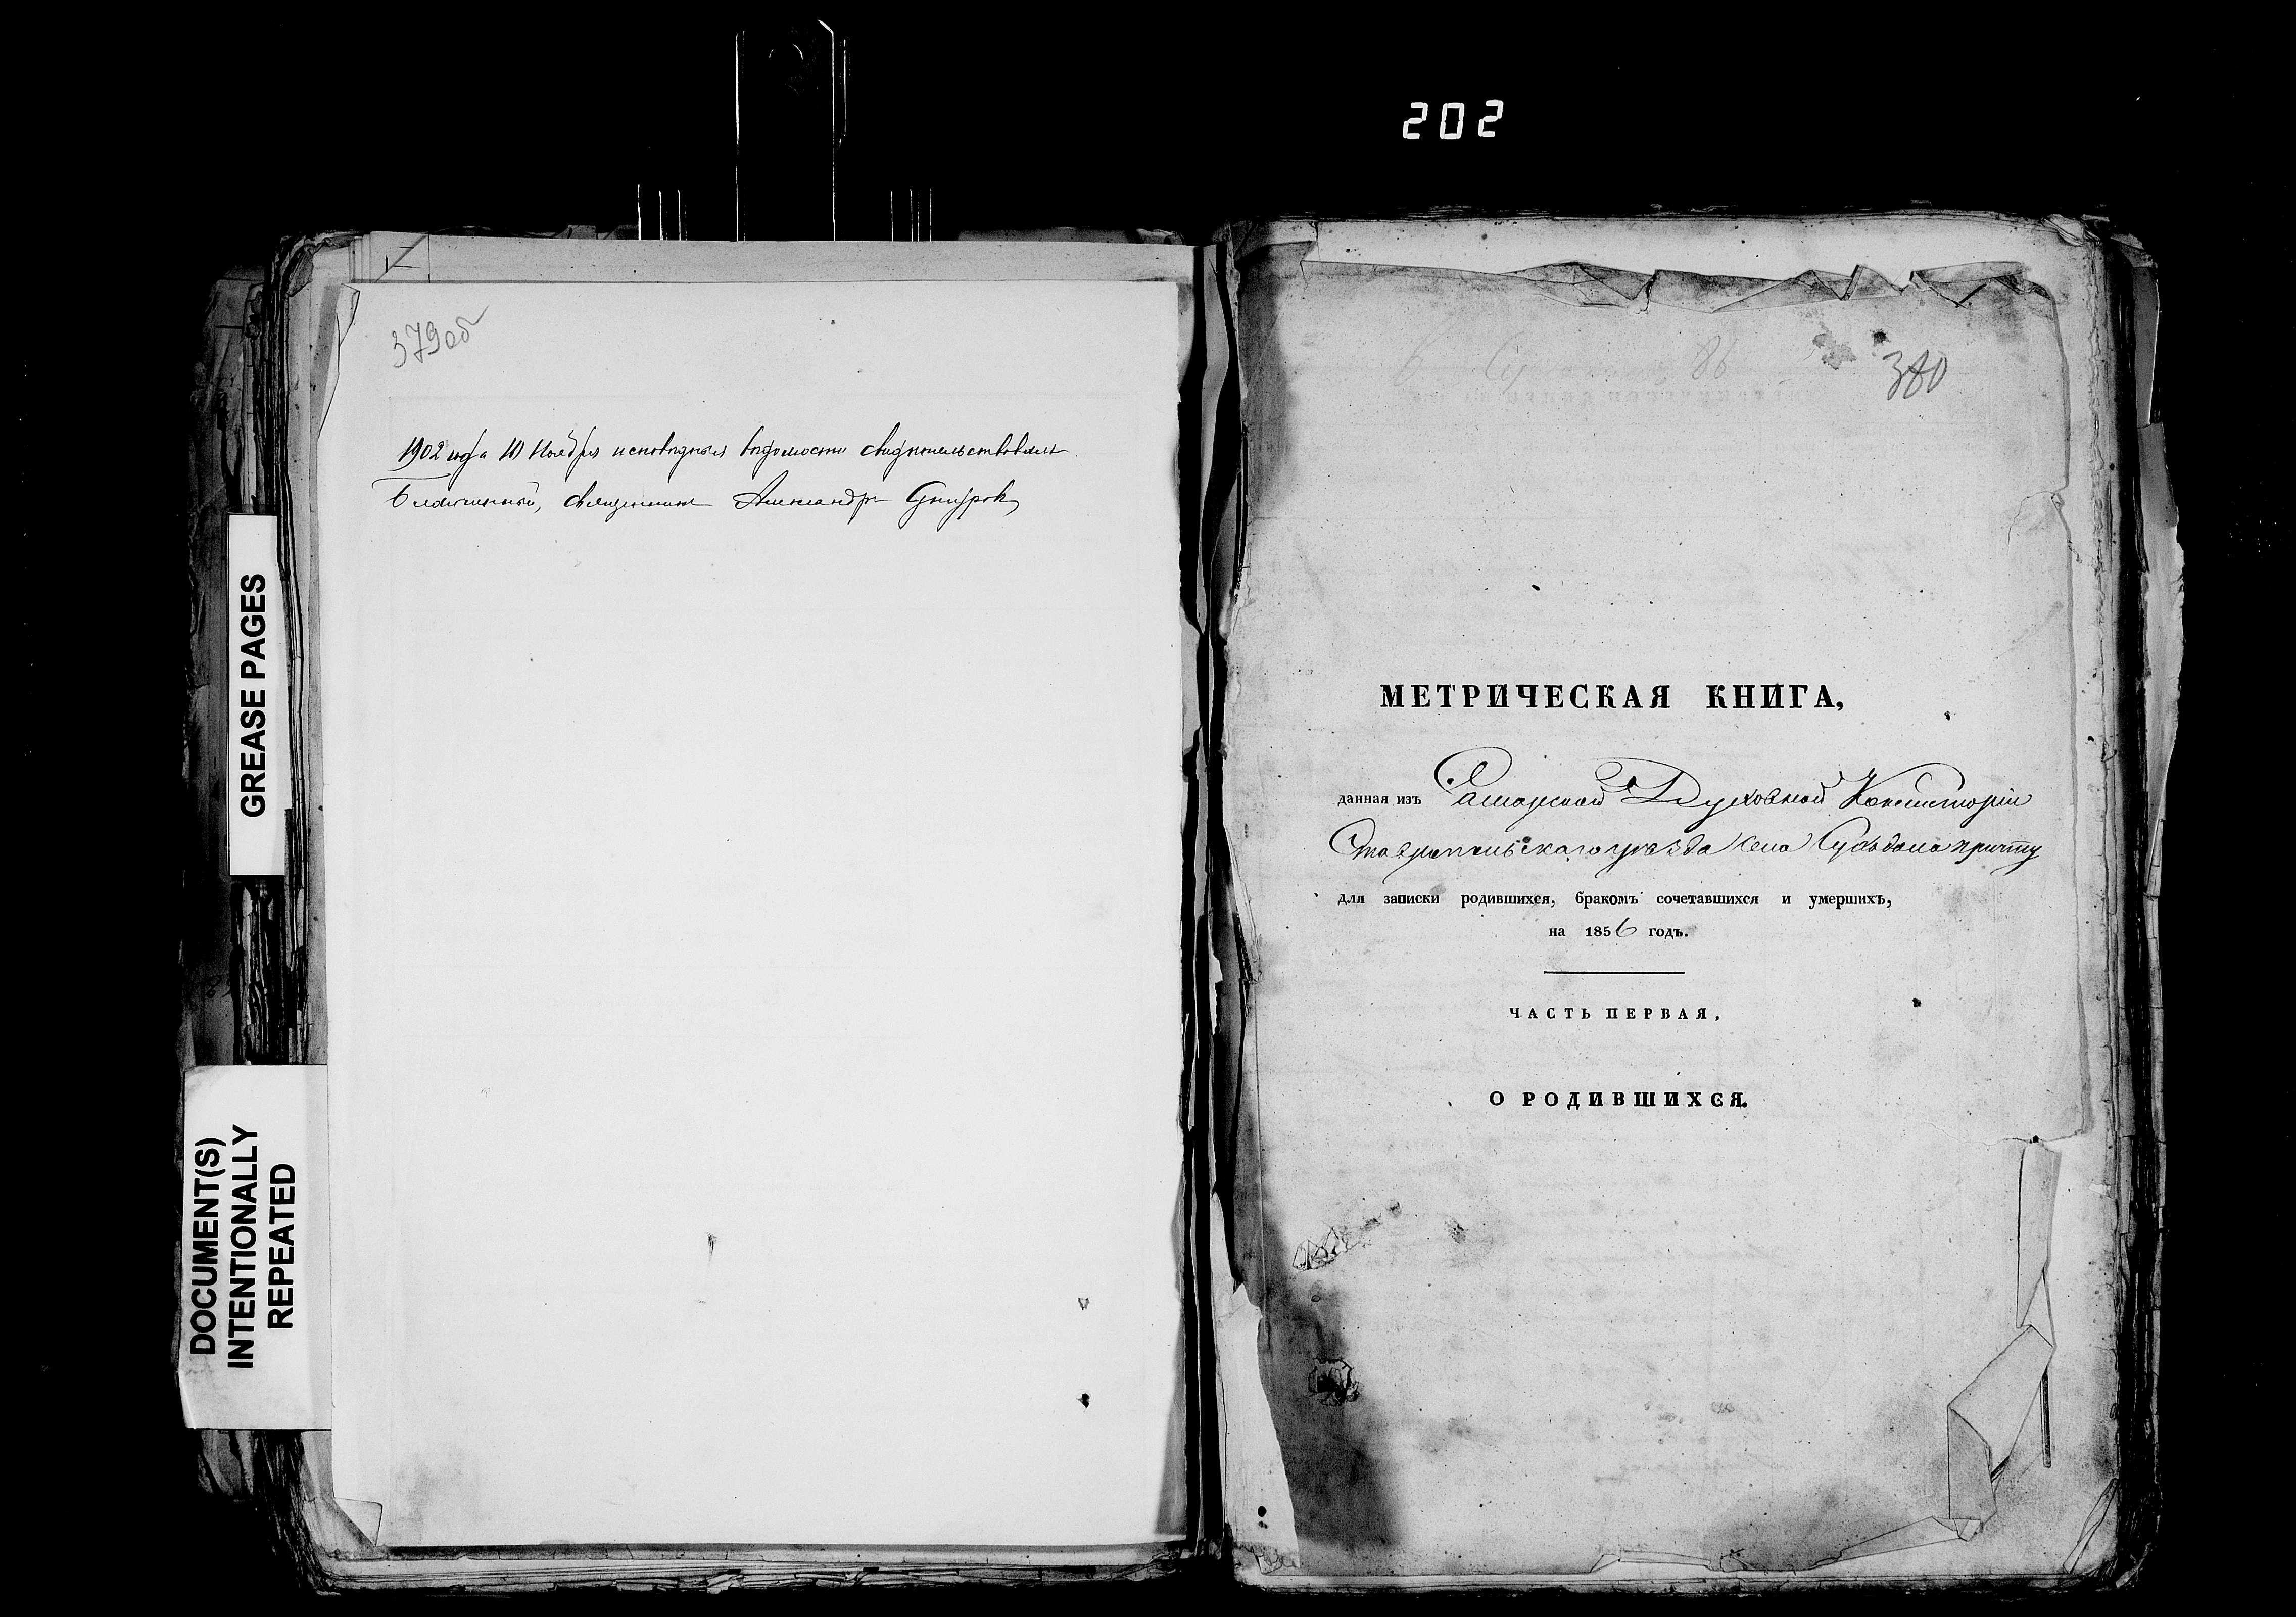 202
379об
1902 года 10 Ноября исповедныя ведомости свидетельствовалъ
Благочинный, священникъ Александръ
GREASE PAGES
DOCUMENT(S)
INTENTIONALLY
REPEATED
380
МЕТРИЧЕСКАЯ КНИГА,
данная изъ Самарской Духовной Консисторіи
Ставропольскаго уезда села причту
для записки родившихся, бракомъ сочетавшихся и умершихъ,
на 1856 годъ.
ЧАСТЬ ПЕРВАЯ,
О РОДИВШИХСЯ.